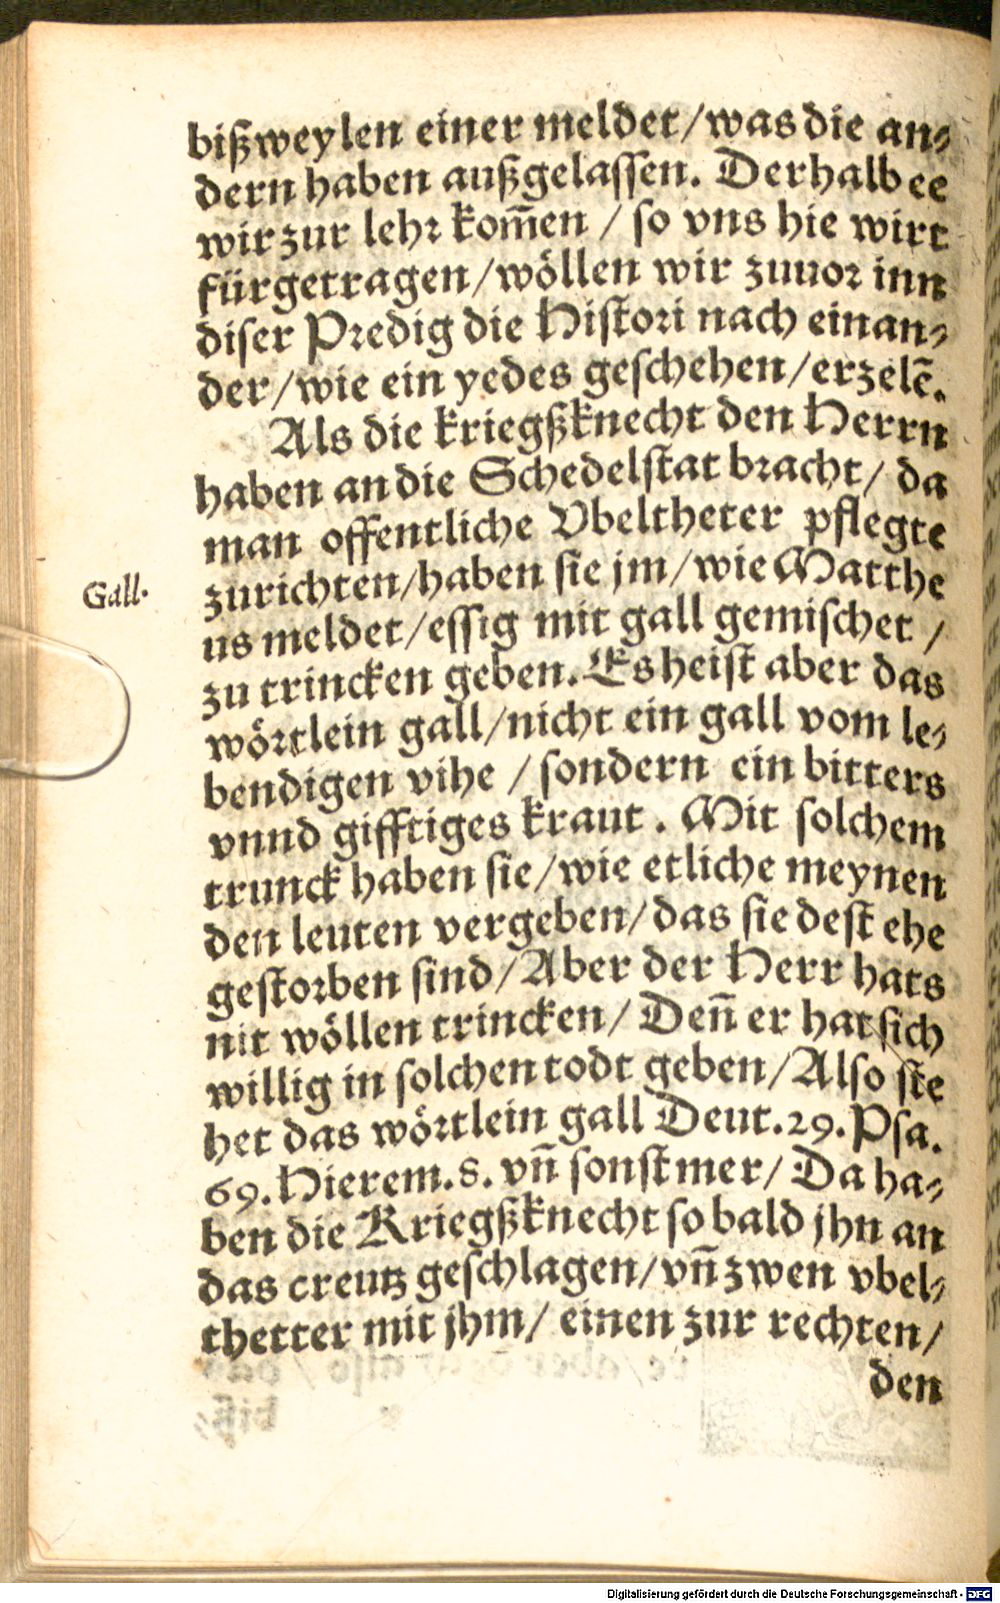 bißweylen einer meldet/was die an⸗
dern haben außgelassen. Derhalb ee
wir zur lehr kom̃en / so vns hie wirt
fürgetragen/wöllen wir zuuor inn
diser Predig die Histori nach einan⸗
der/wie ein yedes geschehen/erzelẽ.
Als die kriegßknecht den Herrn
haben an die Schedelstat bracht/ da
man offentliche Vbeltheter pflegte
zurichten/haben sie jm/wie Matthe
Gall.
us meldet/essig mit gall gemischet /
zu trincken geben. Es heist aber das
wörtlein gall/nicht ein gall vom le⸗
bendigen vihe / sondern ein bitters
vnnd gifftiges kraut . Mit solchem
trunck haben sie/wie etliche meynen
den leuten vergeben/das sie dest ehe
gestorben sind/Aber der Herr hats
nit wöllen trincken/ Deñ er hat sich
willig in solchen todt geben/Also ste
het das wörtlein gall Deut.29.Psa.
69.Hierem.8. vñ sonst mer/ Da ha⸗
ben die Kriegßknecht so bald jhn an
das creutz geschlagen/vñ zwen vbel⸗
thetter mit jhm/ einen zur rechten/
den
Digitalisierung gefördert durch die Deutsche Forschungsgemeinschaft - DFG